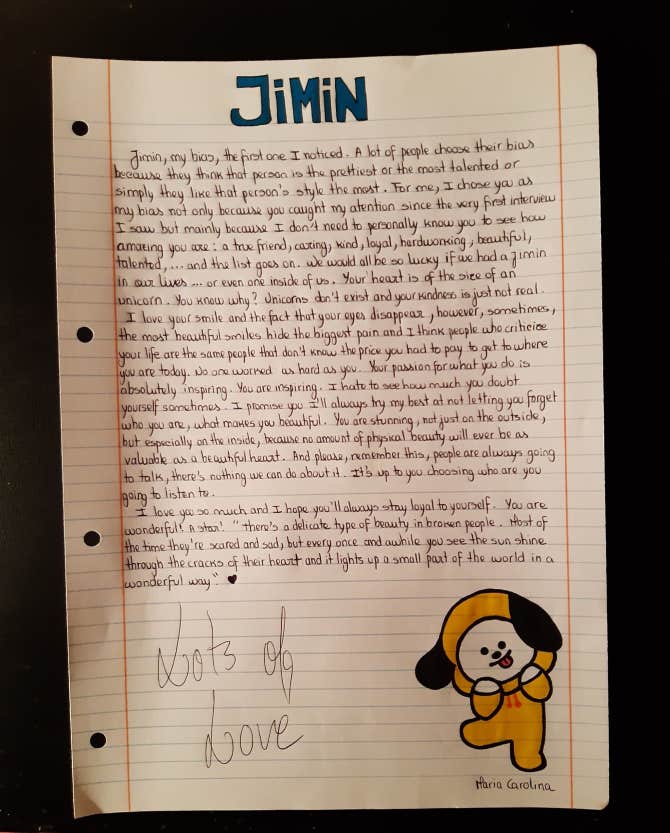 JiMiN
Jimin, my bias, the first one I noticed. A lot of people choose their bias
because they think that person is the prettiest or the most talented or
simply they like that person's style the most. For me, I chose you as
my bias not only because you caught my atention since the very first interview
I saw but mainly because I don't need to personally know you to see how
amazing you are: a true friend, caring, kind, loyal, hardworking, beautiful,
talented,... and the list goes on. We would all be so lucky if we had a Jimin
in our lives... or even one inside of us. Your heart is of the size of an
unicorn. You know why? Unicorns don't exist and your kindness is just not real.
I love your smile and the fact that your eyes disappear, however, sometimes,
the most beautiful smiles hide the biggest pain and I think people who criticice
your life are the same people that don't know the price you had to pay to get to where
you are today. No one worked as hard as you. Your passion for what you do is
absolutely inspiring. You are inspiring. I hate to see how much you doubt
yourself sometimes. I promise you I'll always try my best at not letting you forget
who you are, what makes you beautiful. You are stunning, not just on the outside,
but especially on the inside, because no amount of physical beauty will ever be as
valuable as a beautiful heart. And please, remember this, people are always going
to talk, there's nothing we can do about it. It's up to you choosing who are you
going to listen to.
I love you so much and I hope you'll always stay loyal to yourself. You are
wonderful! A star! "There's a delicate type of beauty in broken people. Most of
the time they're scared and sad, but every once and awhile you see the sun shine
through the cracks of their heart and it lights up a small part of the world in a
wonderful way". ♥
Lots of
Love
Maria Carolina